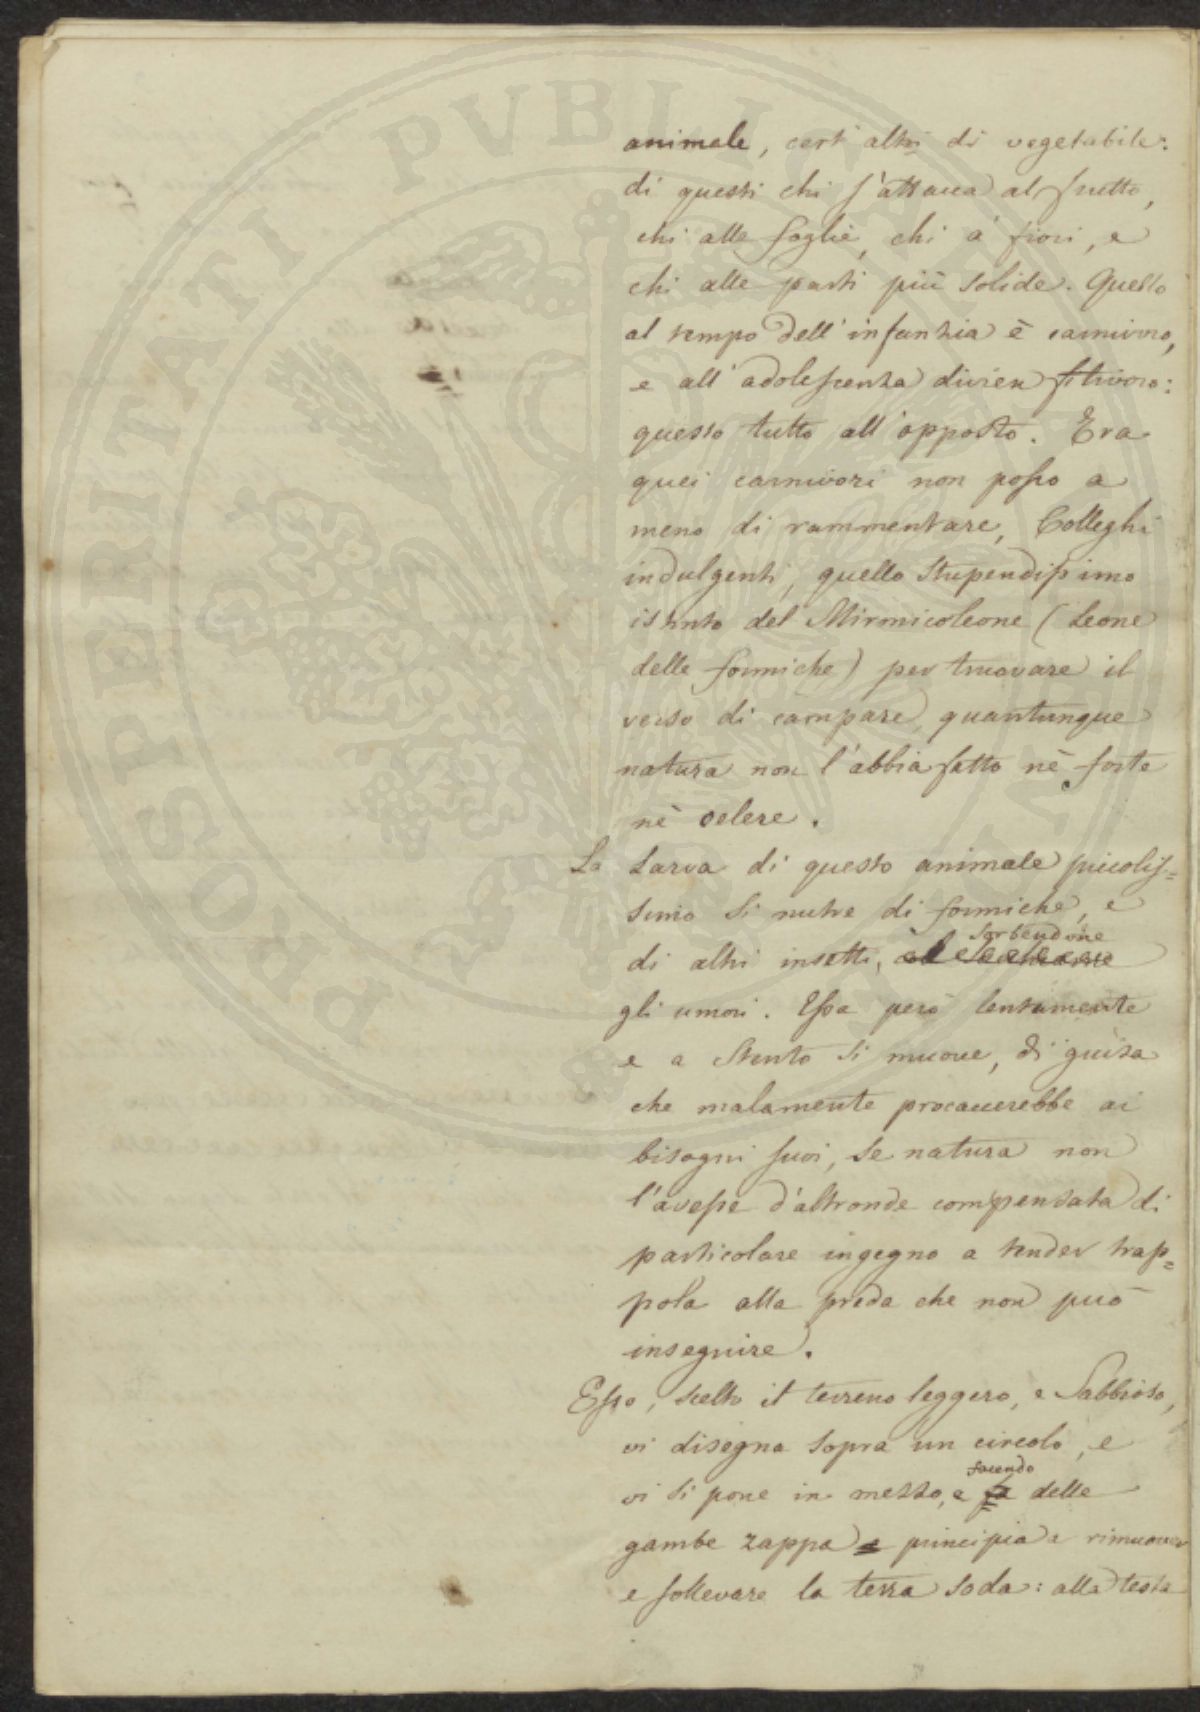 animale, cert' altri di vegetabile:
di questi chi s'attacca al frutto,
chi alle foglie, chi a' fiori, e
chi alle parti più solide. Quello
al tempo dell'infanzia è carnivoro,
e all'adolescenza divien fitivoro:
questo tutto all'opposto. Era
quei carnivori non posso a
meno di rammentare, Colleghi
indulgenti, quello stupendissimo
istinto del Mirmicoleone (Leone
delle formiche) per truovare il
verso di campare, quantunque
natura non l'abbia fatto nè forte
nè celere.
La Larva di questo animale piccolis=
simo si nutre di formiche, e
sorbendone
di altri insetti,
gli umori. Essa però lentamente
e a stento si muove, di guisa
che malamente procaccerebbe ai
bisogni suoi, se natura non
l'avesse d'altronde compensata di
particolare ingegno a tender trap=
pola alla preda che non può
inseguire.
Esso, scelto il terreno leggero, e sabbioso,
vi disegna sopra un circolo, e
facendo
vi si pone in mezzo, e fa delle
gambe zappa e principia a rimuover
e sollevare la terra soda: alla testa
PROSPERITATI PVBLICAE